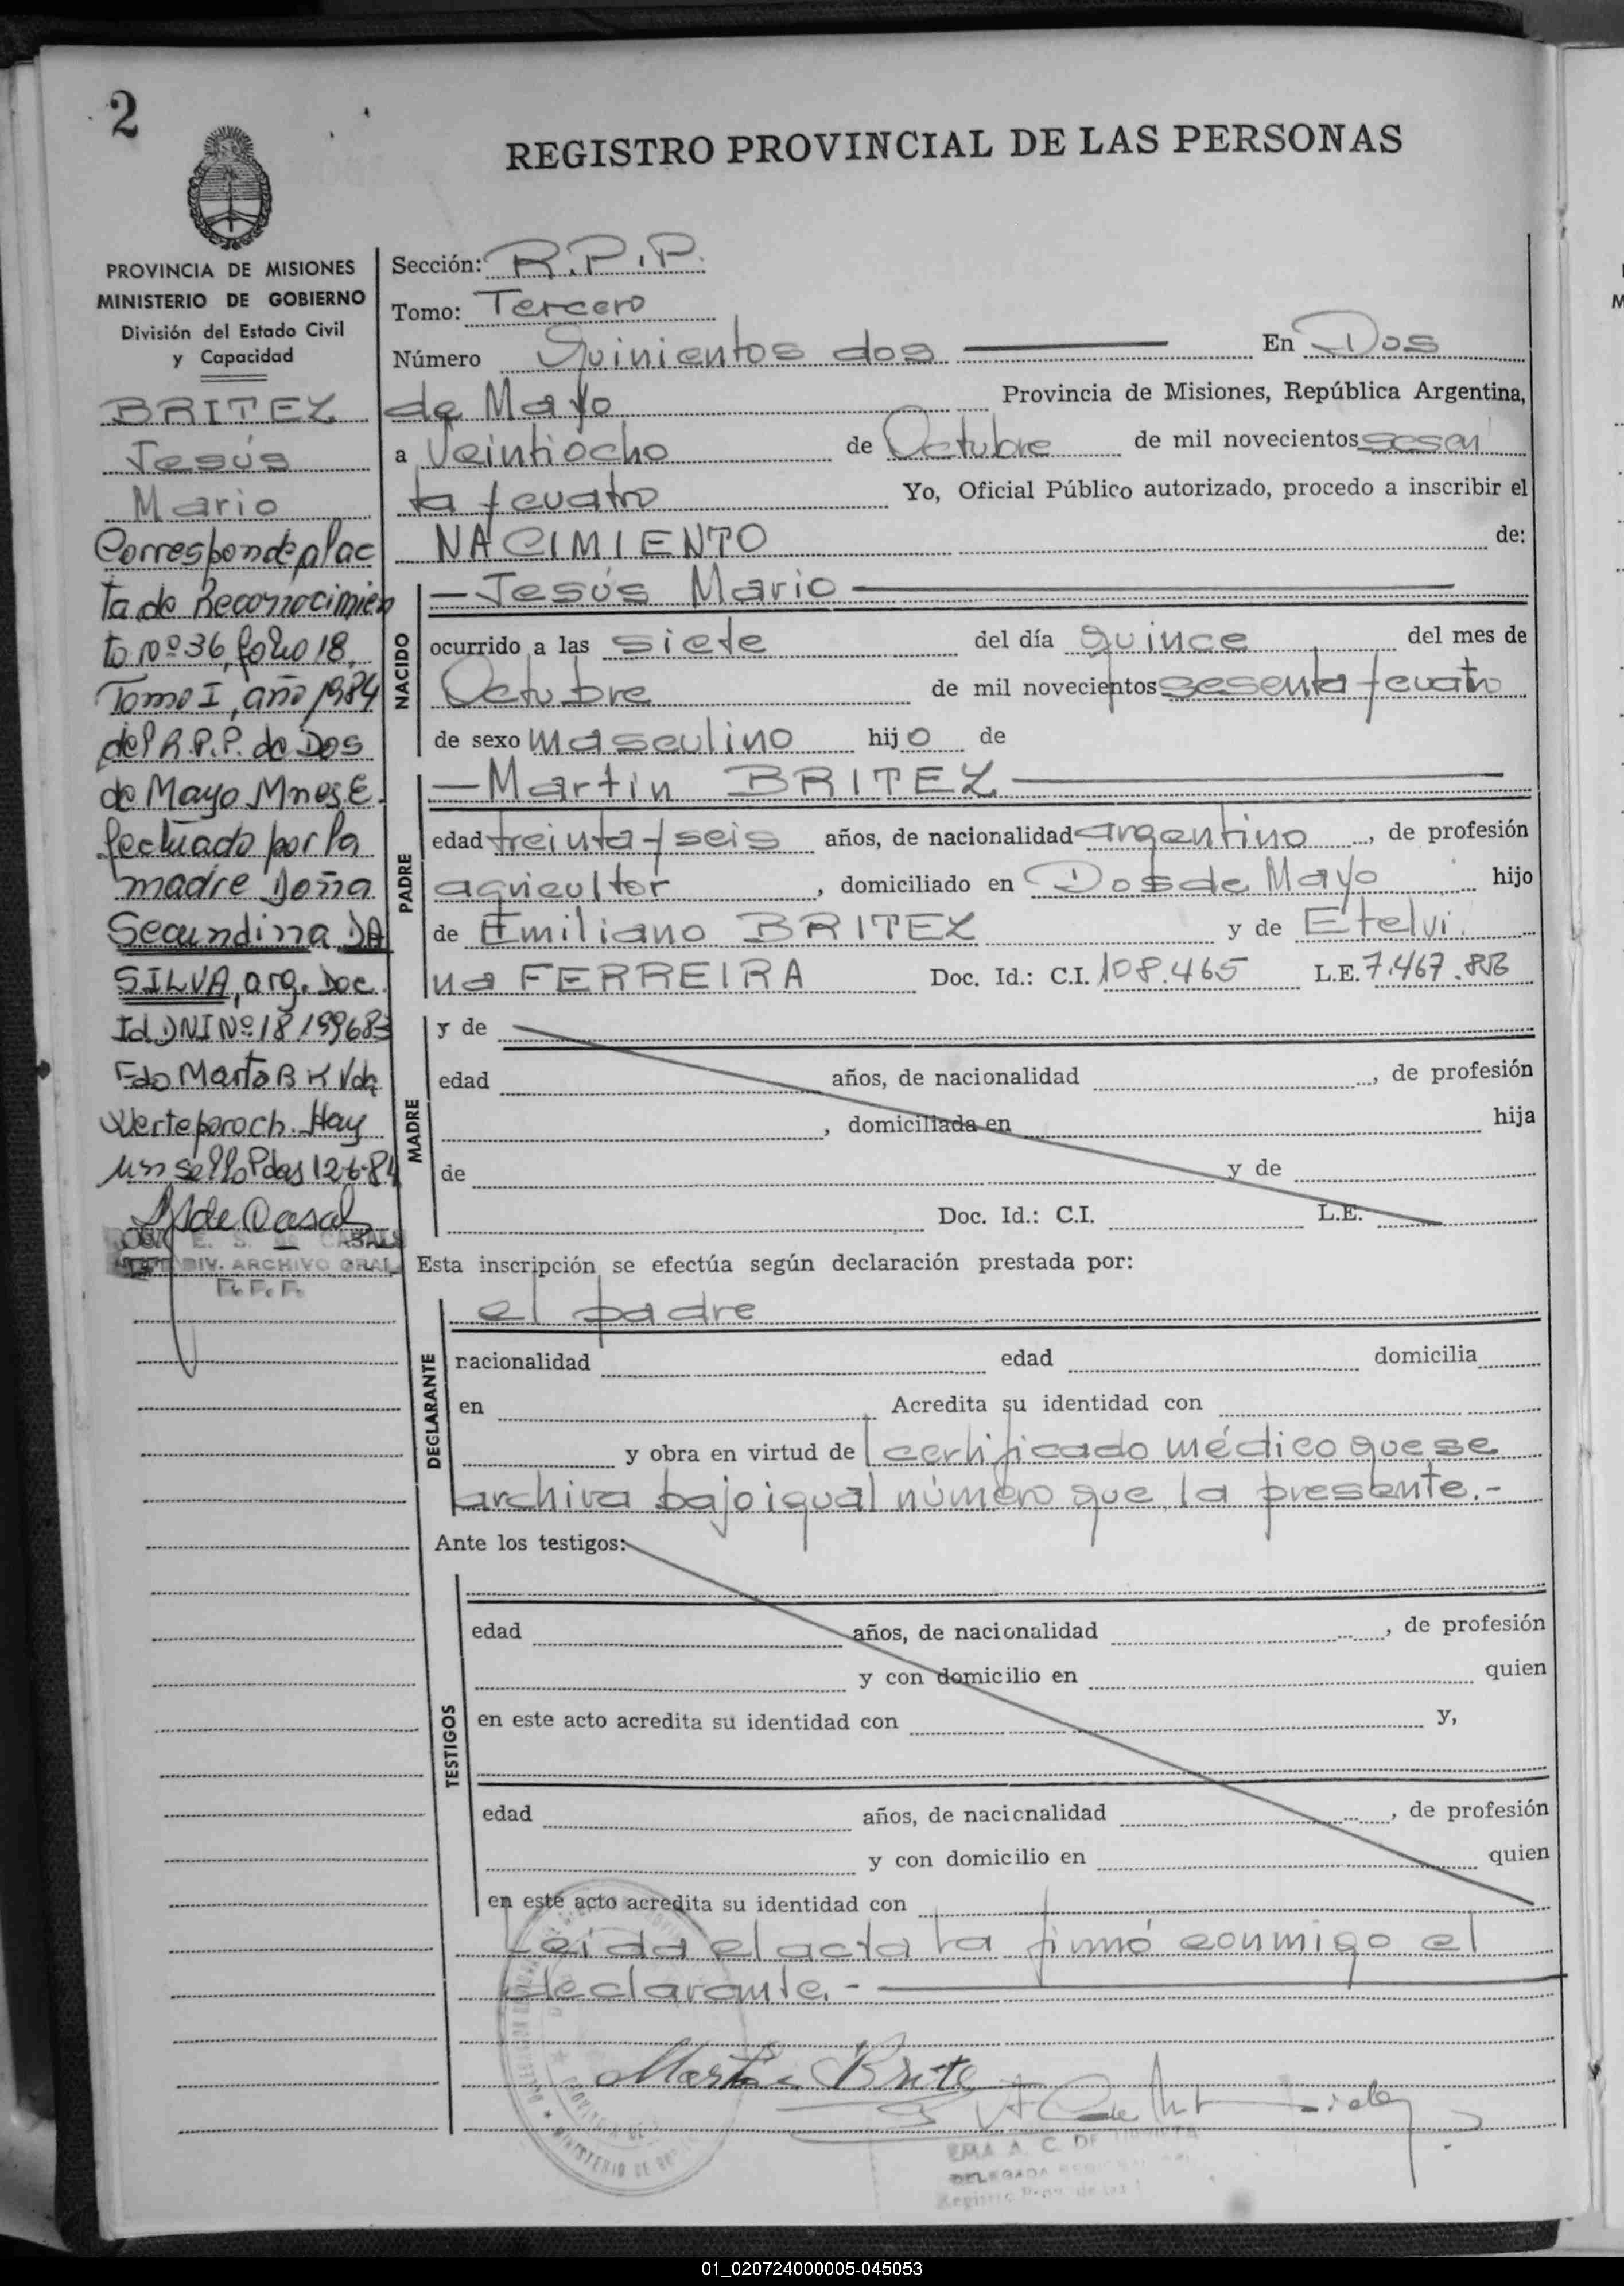 2
REGISTRO PROVINCIAL DE LAS PERSONAS
PROVINCIA DE MISIONES
MINISTERIO DE GOBIERNO
División del Estado Civil
y Capacidad
BRITEZ
Jesús
Mario
Corresponde al ac
ta de Reconocimien
to Nº 36, folio 18,
Tomo I, año 1984
del R.P.P. de Dos
de Mayo Mnes E
fectuado por la
madre Doña
Secundina DA
SILVA, arg. Doc.
Id DNI Nº 18199683
Fdo Marta B K Vda
Hay
un sello Pdas 12-6-84
E. S. de CASALS
DIV. ARCHIVO GRAL
R. P. P.
Sección: R.P.P.
Tomo: Tercero
Número Quinientos dos En Dos
de Mayo Provincia de Misiones, República Argentina,
a Veintiocho de Octubre de mil novecientos sesen
ta y cuatro Yo, Oficial Público autorizado, procedo a inscribir el
NACIMIENTO de:
NACIDO
— Jesús Mario —
ocurrido a las siete del día quince del mes de
Octubre de mil novecientos sesenta y cuatro
de sexo masculino hijo de
PADRE
— Martin BRITEZ —
edad treinta y seis años, de nacionalidad argentino, de profesión
agricultor, domiciliado en Dos de Mayo hijo
de Emiliano BRITEZ y de Etelvi
na FERREIRA Doc. Id.: C.I. 108.465 L.E. 7.467.
MADRE
y de
edad años, de nacionalidad , de profesión
, domiciliada en hija
de y de
Doc. Id.: C.I. L.E.
Esta inscripción se efectúa según declaración prestada por:
DECLARANTE
el padre
nacionalidad edad domicilia
en Acredita su identidad con
y obra en virtud del certificado médico que se
archiva bajo igual número que la presente.-
Ante los testigos:
TESTIGOS
edad años, de nacionalidad , de profesión
y con domicilio en quien
en este acto acredita su identidad con y,
edad años, de nacionalidad , de profesión
y con domicilio en quien
en este acto acredita su identidad con
Leida el acta la firmó conmigo el
declarante.-
Martin Brite
EMA A. C. DE
DELEGADA
01_020724000005-045053